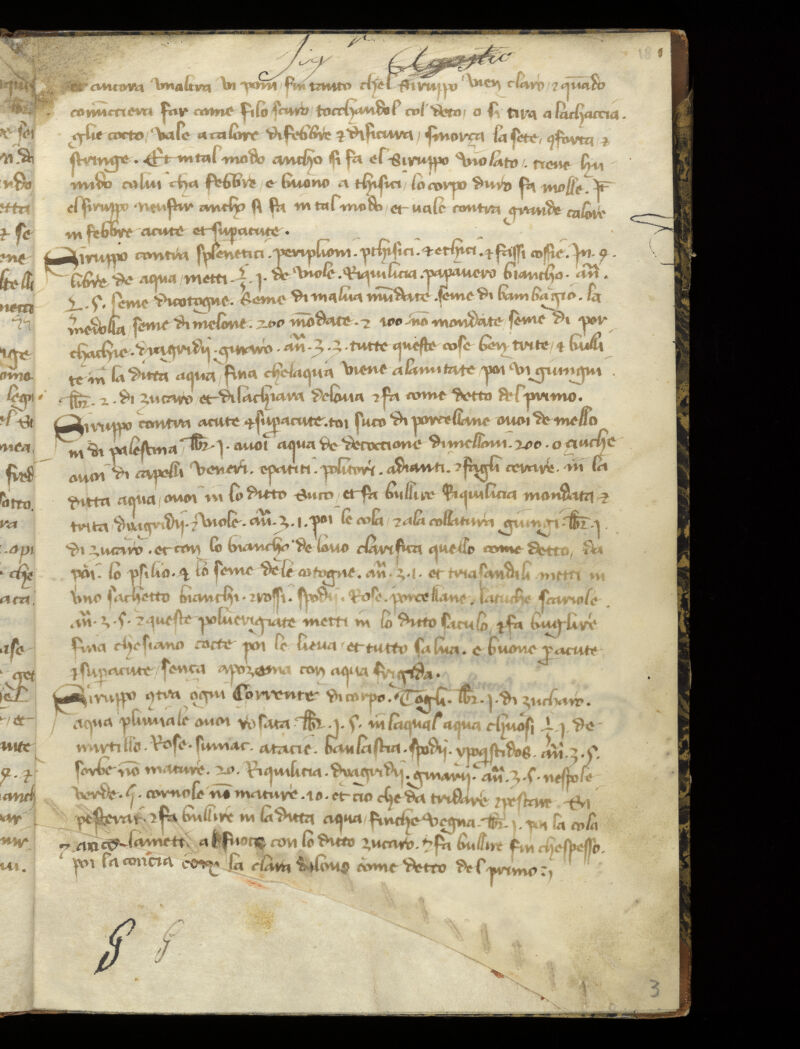 et ancora unaltra vi poni fin tanto chel Siruppo vien claro, ⁊ quãdo
comẽcciera far come filo scuro toccandol col deto, o si tira alachaccia.
glie cocto, vale acalore di febbre ⁊ di siccura, smorça la sete, ⁊
stringe. Et in tal modo ancho si fa el Siruppo violato. tiene hu
mido colui cha febbre, e buono a thisici, lo corpo duro fa molle.
el siruppo neufar ancho si fa in tal modo, et vale contra grande calore
in febbre acute et superacute.
Siruppo contra splenetici. periplioni. pthisici. ⁊ ethici. ⁊ fassi cossie. Jn. 4.
libre de aqua, metti ℥. j. de viole. Riquilicia. papavero biancho. añ.
℥. s. seme di cotogne. Seme di malua mũdate. seme di bambagio. la
medolla, seme di melone. 200 mõdate. ⁊ 100 nõ mondate seme di por
chachie. dragridij. gumaro. añ. ʒ. 3. tutte queste cose ben trite, ⁊ bulli
te in la ditta aqua, fina chelaqua viene alamitate, poi vi giungni
lbr. 2. di zucaro et dilachiara delova ⁊ fa come detto del primo.
Siruppo contra acute ⁊ superacute. toi suco di porcellane ovoi de mello
ni di palestina lbr. j. ovoi aqua de decoctione di melloni. 200. o ciuche
ovoi di capelli veneri. epatiti. politori. adianti. ⁊ fagli cocere. in la
ditta aqua, ovoi in lo ditto suco, et fa bullire Riquilicia mondata ⁊
trita dragridij. ⁊ viole. añ. ʒ. 1. poi le cola, ⁊ ala collatura giungi. lbr. j.
di zucaro. et con lo biancho de lovo clarifica quello come detto, da
poi. lo psilio. ⁊ lo seme dele cotogne. añ. ʒ. 1. et tria sandali metti in
uno sachetto bianchi. ⁊ rossi. spodij. Rose. porcellane. latuche scariole.
añ. ʒ. s. ⁊ queste polverigiate metti in lo ditto saculo, ⁊ fa buglire
fina che siano cocte poi le lieva, et tutto salva. e buone p acute
⁊ superacute, senca apozema con aqua frigida.
Siruppo contra ogni Corrente di corpo. Togli. lbr. j. di zucharo.
aqua pluviale ovoi rosata. lbr. j. s. in laqual aqua chuosi ℥ j. de
mirtillo. Rose. sumac. atacie. baulastia. spodij. ypoqstidos. añ. ʒ. s.
sorbe nõ mature. 20. Riquilicia. dragridij. gumarij. añ. ʒ. s. nespole
verde. 5. cornole nõ mature. 10. et cio che da tridare ⁊ pestare. Si
pesterai, ⁊ fa bullire in la ditta aqua, finche vegna. lbr. j. poi la cola
⁊ anco lametti al fuoco con lo ditto zucaro. ⁊ fa bullire fin chespesso.
poi la concia con la clara delovo come detto del primo:
3